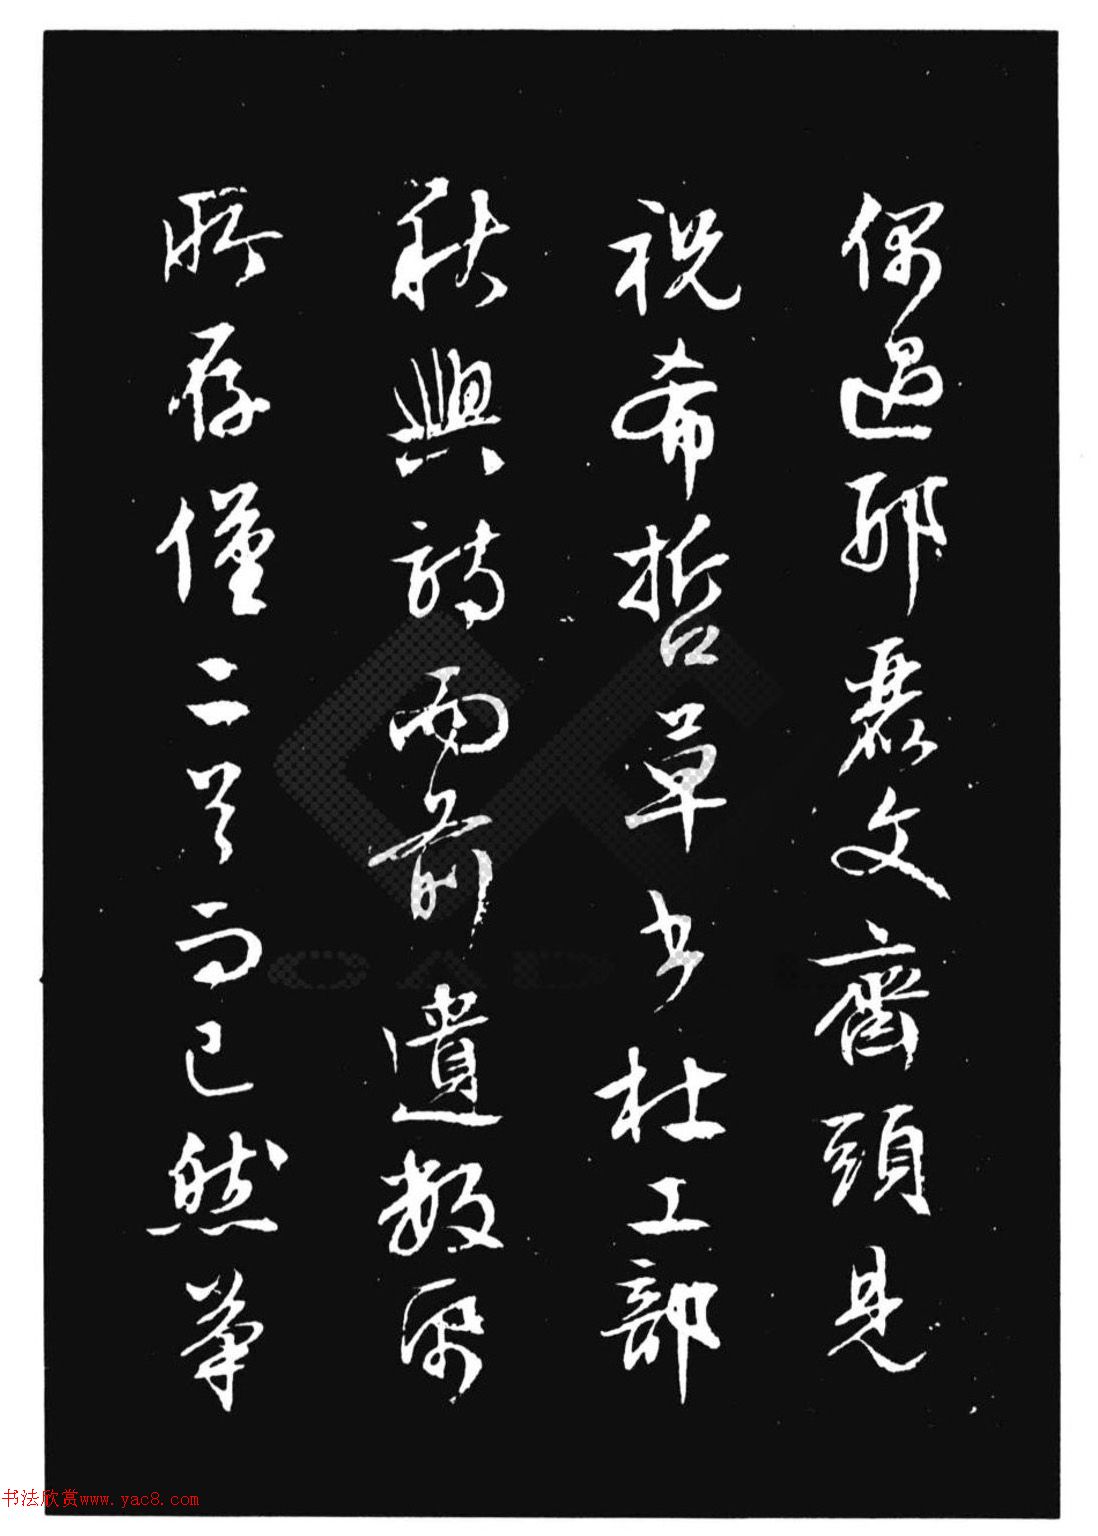 偶過邢聶文齋頭見
祝希哲草书杜工部
秋興詩而前遺數紙
所存僅二首而已然筆
书法欣赏www.yac8.com